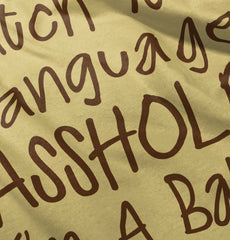 atch
anguage
ASSHOL
A Ba